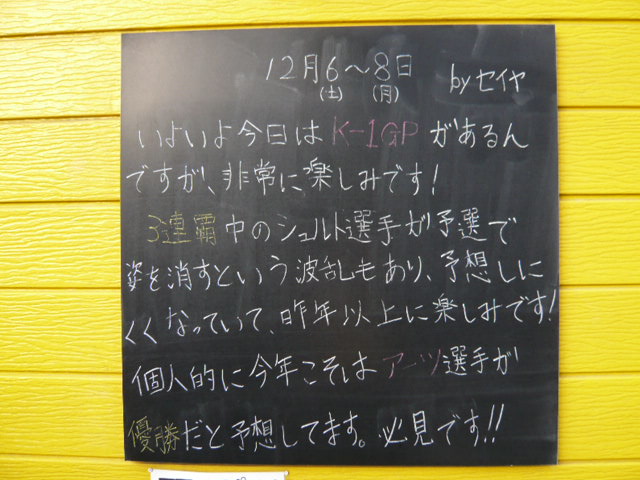 12月6〜8日 byセイヤ
(土) (月)
いよいよ今日はK-1GPがあるん
ですが、非常に楽しみです!
3連覇中のシュルト選手が予選で
姿を消すという波乱もあり、予想しに
くくなっていて、昨年以上に楽しみです!
個人的に今年こそはアーツ選手が
優勝だと予想してます。必見です!!